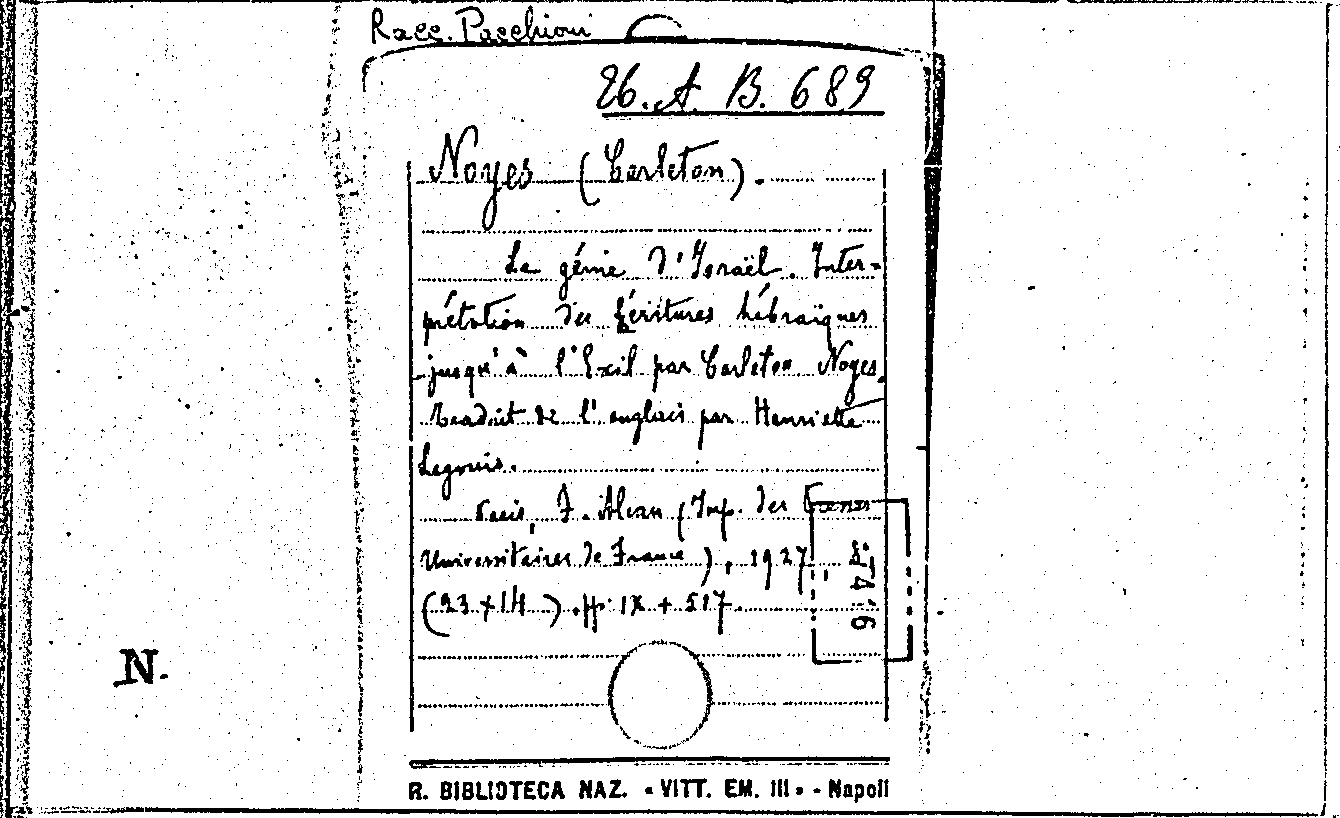 Racc. Pacchioni
26. A. B. 689
Noyes (Carleton).
Le génie d'Israël. Inter-
prétation des écritures hébraïques
jusqu'à l'Exil par Carleton Noyes.
Traduit de l'anglais par Henriette
Legouis.
Paris, F. Alcan (Imp. des Presses
Universitaires de France), 1927.
(23 x 14). pp. IX + 517.
N.
R. BIBLIOTECA NAZ. « VITT. EM. III » - Napoli